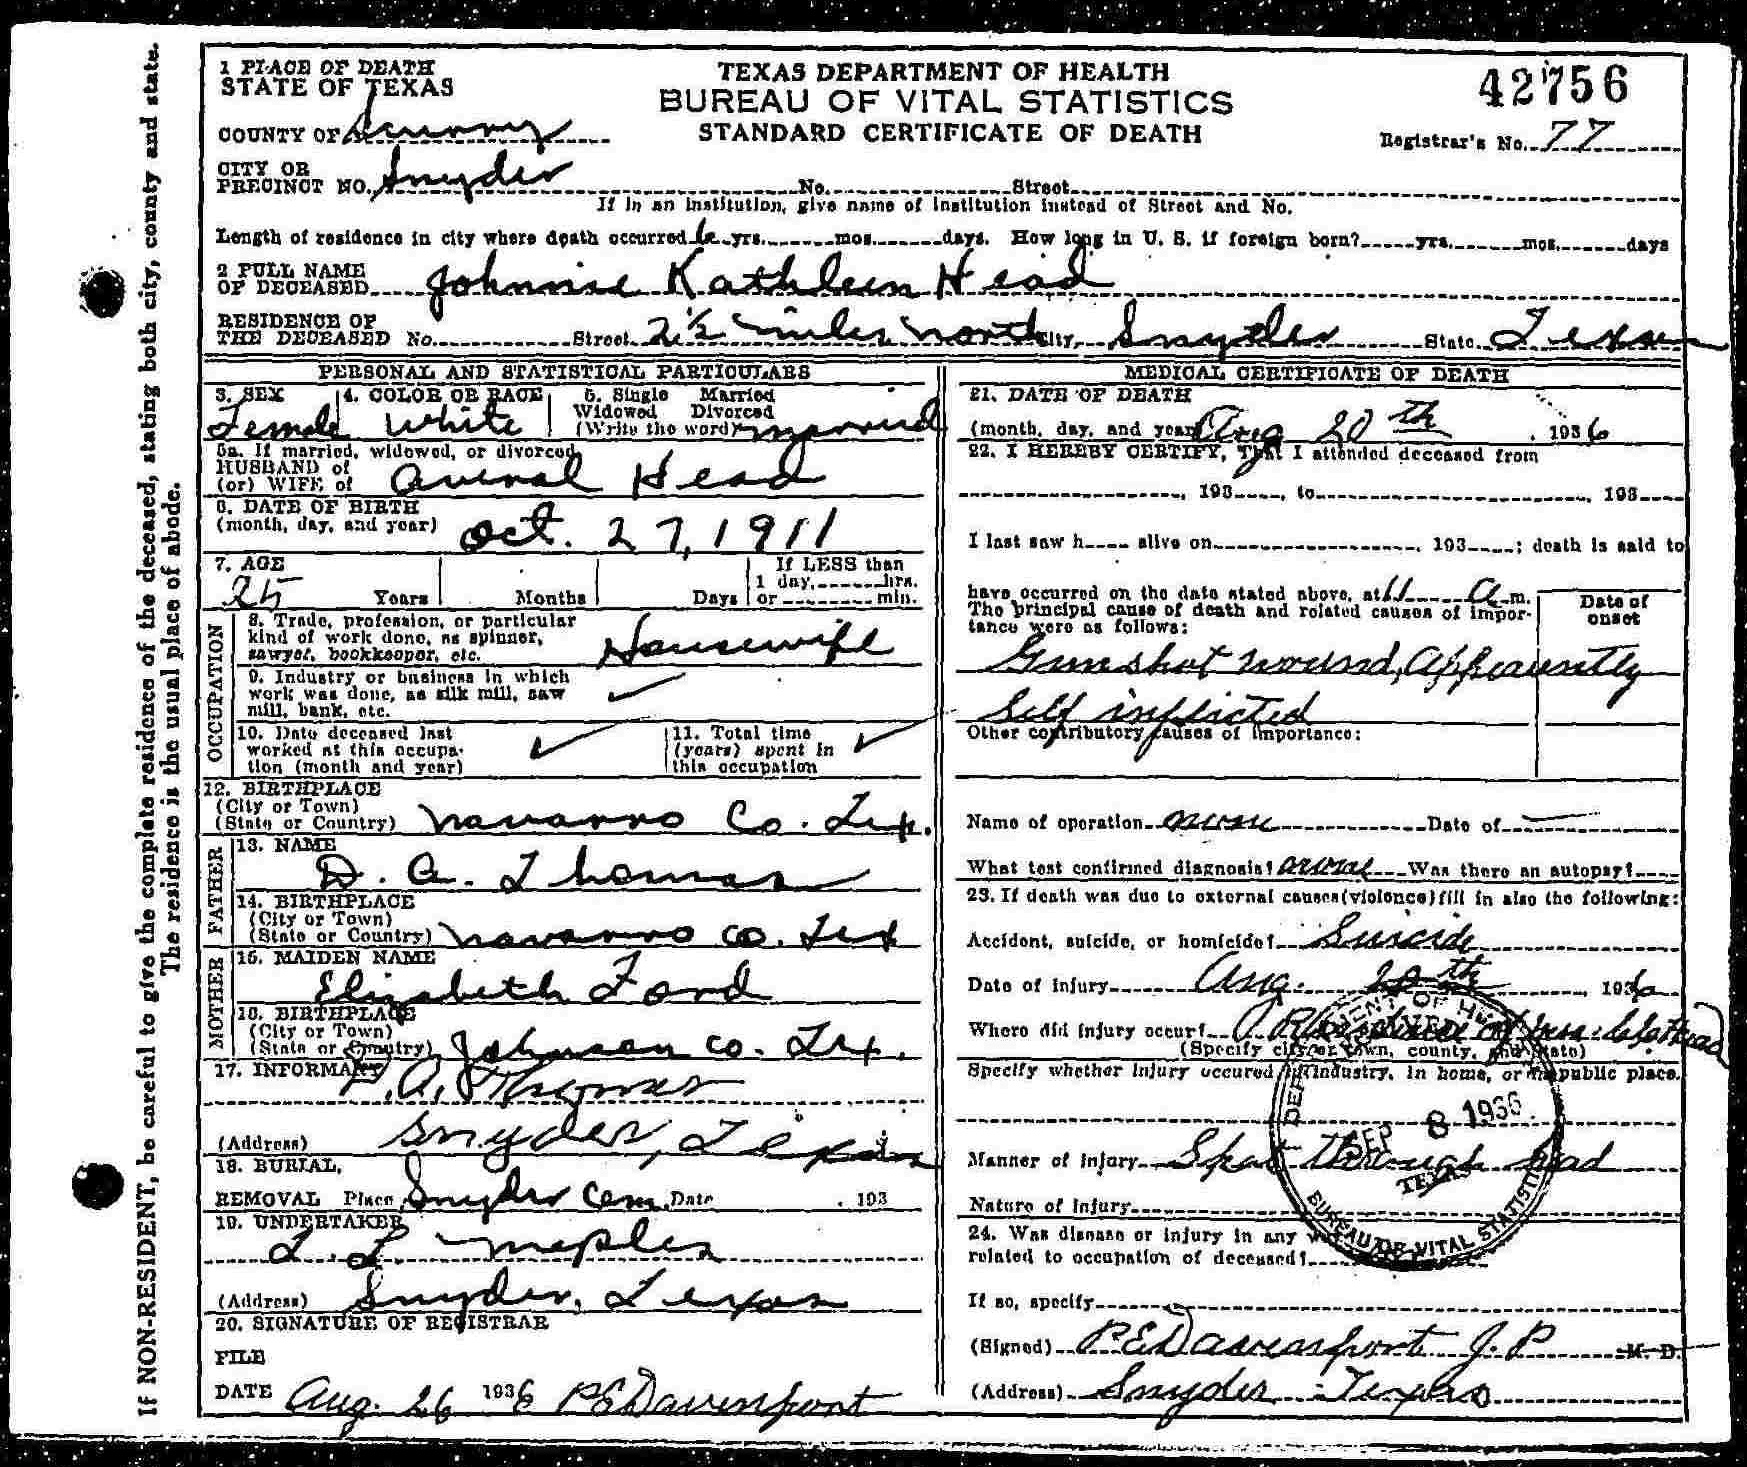 1 PLACE OF DEATH
STATE OF TEXAS
COUNTY OF Scurry
CITY OR
PRECINCT NO. Snyder No. Street
TEXAS DEPARTMENT OF HEALTH
BUREAU OF VITAL STATISTICS
STANDARD CERTIFICATE OF DEATH
42756
Registrar's No. 77
If in an institution, give name of institution instead of Street and No.
Length of residence in city where death occurred 6 yrs. mos. days. How long in U. S. if foreign born? yrs. mos. days
2 FULL NAME
OF DECEASED Johnnie Kathleen Head
RESIDENCE OF
THE DECEASED No. Street 2 1/2 miles North City Snyder State Texas
PERSONAL AND STATISTICAL PARTICULARS
3. SEX
Female
4. COLOR OR RACE
White
5. Single Married
Widowed Divorced
(Write the word) married
5a. If married, widowed, or divorced
HUSBAND of
(or) WIFE of Head
6. DATE OF BIRTH
(month, day, and year) Oct. 27, 1911
7. AGE
25 Years Months Days
If LESS than
1 day, hrs.
or min.
OCCUPATION
8. Trade, profession, or particular
kind of work done, as spinner,
sawyer, bookkeeper, etc. Housewife
9. Industry or business in which
work was done, as silk mill, saw
mill, bank, etc.
10. Date deceased last
worked at this occupa-
tion (month and year)
11. Total time
(years) spent in
this occupation
12. BIRTHPLACE
(City or Town)
(State or Country) Navarro Co. Tex.
FATHER
13. NAME
D. A. Thomas
14. BIRTHPLACE
(City or Town)
(State or Country) Navarro Co. Tex
MOTHER
15. MAIDEN NAME
Elizabeth Ford
16. BIRTHPLACE
(City or Town)
(State or Country) Johnson Co. Tex.
17. INFORMANT D. A. Thomas
(Address) Snyder, Texas
18. BURIAL,
REMOVAL Place Snyder Cem. Date . 193
19. UNDERTAKER
(Address) Snyder, Texas
20. SIGNATURE OF REGISTRAR
FILE
DATE Aug. 26 1936 P E Davenport
MEDICAL CERTIFICATE OF DEATH
21. DATE OF DEATH
(month, day, and year) Aug 20th . 1936
22. I HEREBY CERTIFY, That I attended deceased from
, 193 , to , 193
I last saw h alive on , 193 ; death is said to
have occurred on the date stated above, at 11 A m.
The principal cause of death and related causes of impor-
tance were as follows:
Date of
onset
Gunshot wound, Apparently
Self inflicted
Other contributory causes of importance:
Name of operation none Date of
What test confirmed diagnosis? Was there an autopsy?
23. If death was due to external causes (violence) fill in also the following:
Accident, suicide, or homicide? Suicide
Date of injury Aug. 20th , 1936
Where did injury occur? Residence of
(Specify city or town, county, and State)
Specify whether injury occured in industry, in home, or in public place.
Manner of injury Shot through head
Nature of injury
24. Was disease or injury in any way
related to occupation of deceased?
If so, specify
(Signed) P E Davenport J. P M. D.
(Address) Snyder Texas
SEP 8 1936
TEXAS
BUREAU OF VITAL STATISTICS
If NON-RESIDENT, be careful to give the complete residence of the deceased, stating both city, county and state.
The residence is the usual place of abode.